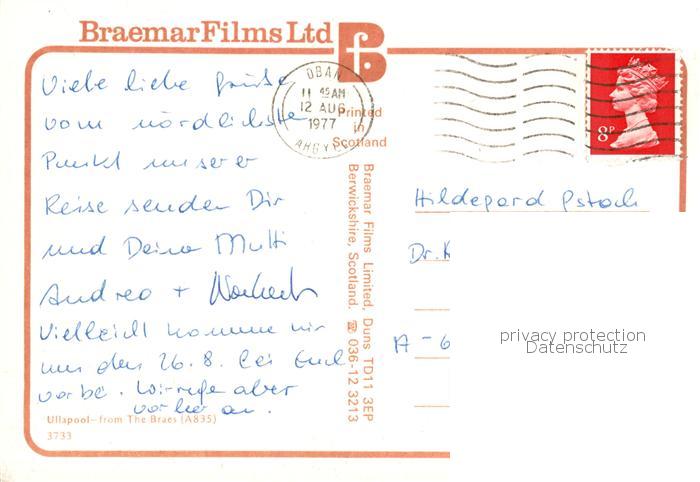 Braemar Films Ltd
fB
OBAN
11 45 AM
12 AUG
1977
ARGYLL
8P
Printed
in
Scotland
Viele liebe Grüße
vom nördlichsten
Punkt unserer
Reise senden Dir
und Deiner Mutti
Andrea + Norbert
Vielleicht kommen wir
um den 26.8. bei Euch
vorbei. Wir rufen aber
vorher an.
Ullapool–from The Braes (A835)
3733
Braemar Films Limited, Duns TD11 3EP
Berwickshire, Scotland. ☎ 036-12 3213
Hildegard
Dr.
A-6
privacy protection
Datenschutz